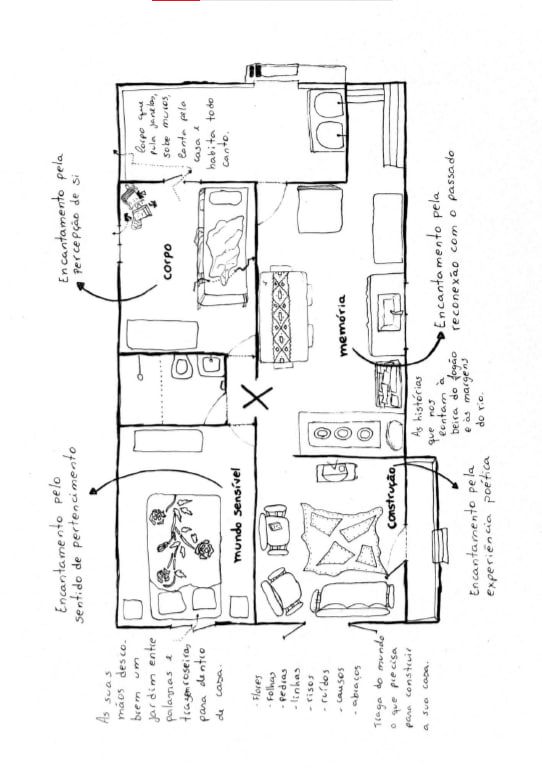 Encantamento pelo
sentido de pertencimento
Encantamento pela
percepção de si
As suas
mãos desco-
brem um
jardim entre
palavras e
trazem roseiras
para dentro
de casa.
mundo sensível
corpo
Corpo que
pula janelas,
sobe muros,
canta pela
casa e
habita todo
canto.
X
- Flores
- folhas
- pedras
- linhas
- risos
- ruídos
- causos
- abraços
Traga do mundo
o que precisa
para construir
a sua casa.
construção
memória
Encantamento pela
experiência poética
As histórias
que nos
contam à
beira do fogão
e às margens
do rio.
Encantamento pela
reconexão com o passado